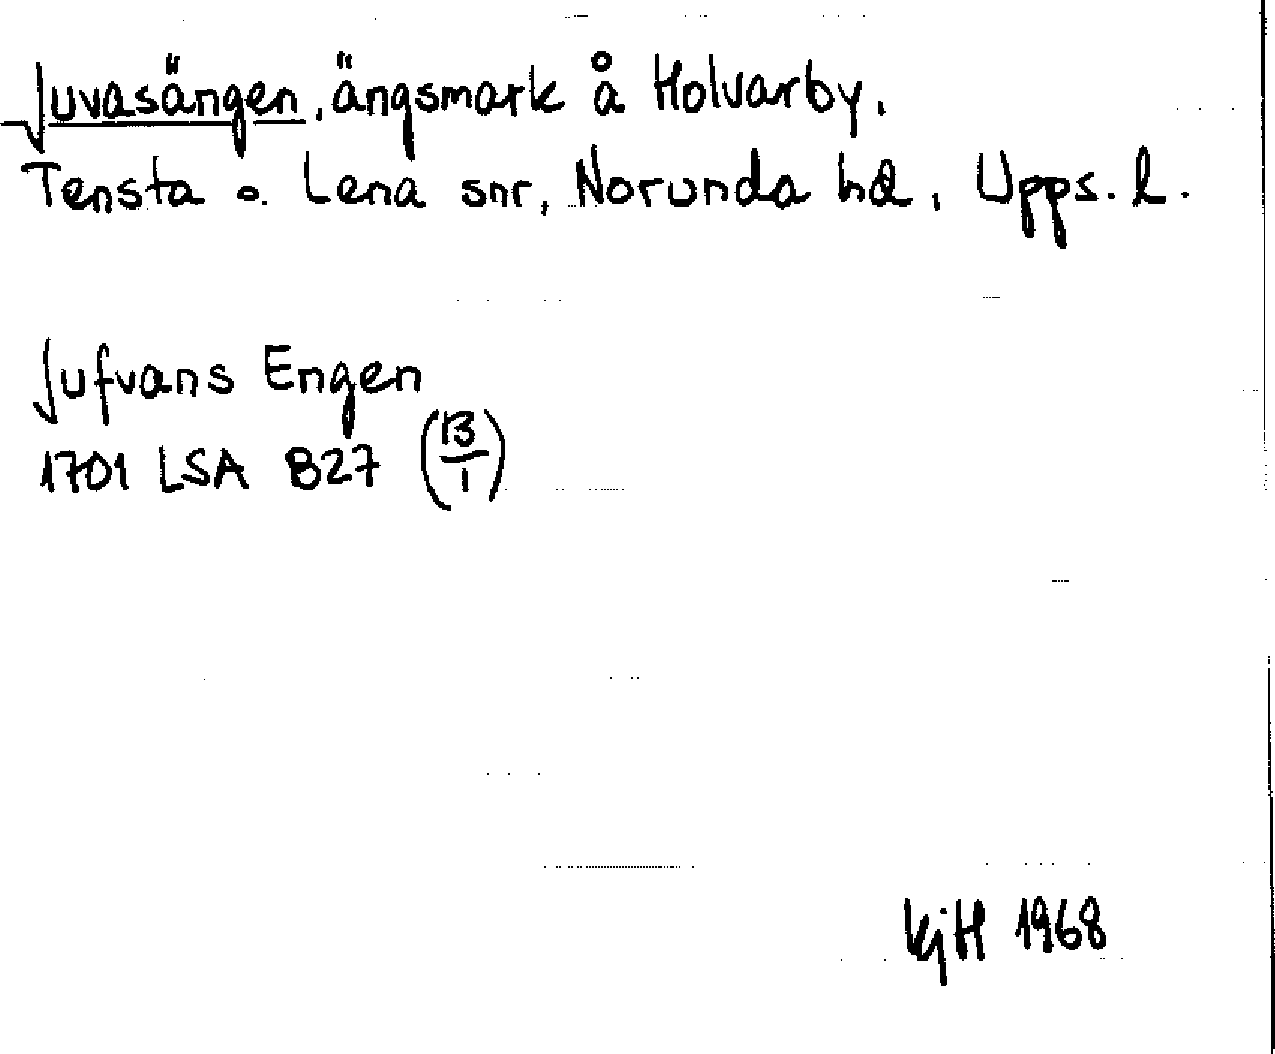 Juvasängen, ängsmark å Holvarby.
Tensta o. Lena snr, Norunda hd, Upps. l.
Jufvans Engen
1701 LSA B27 (13/1)
KjH 1968